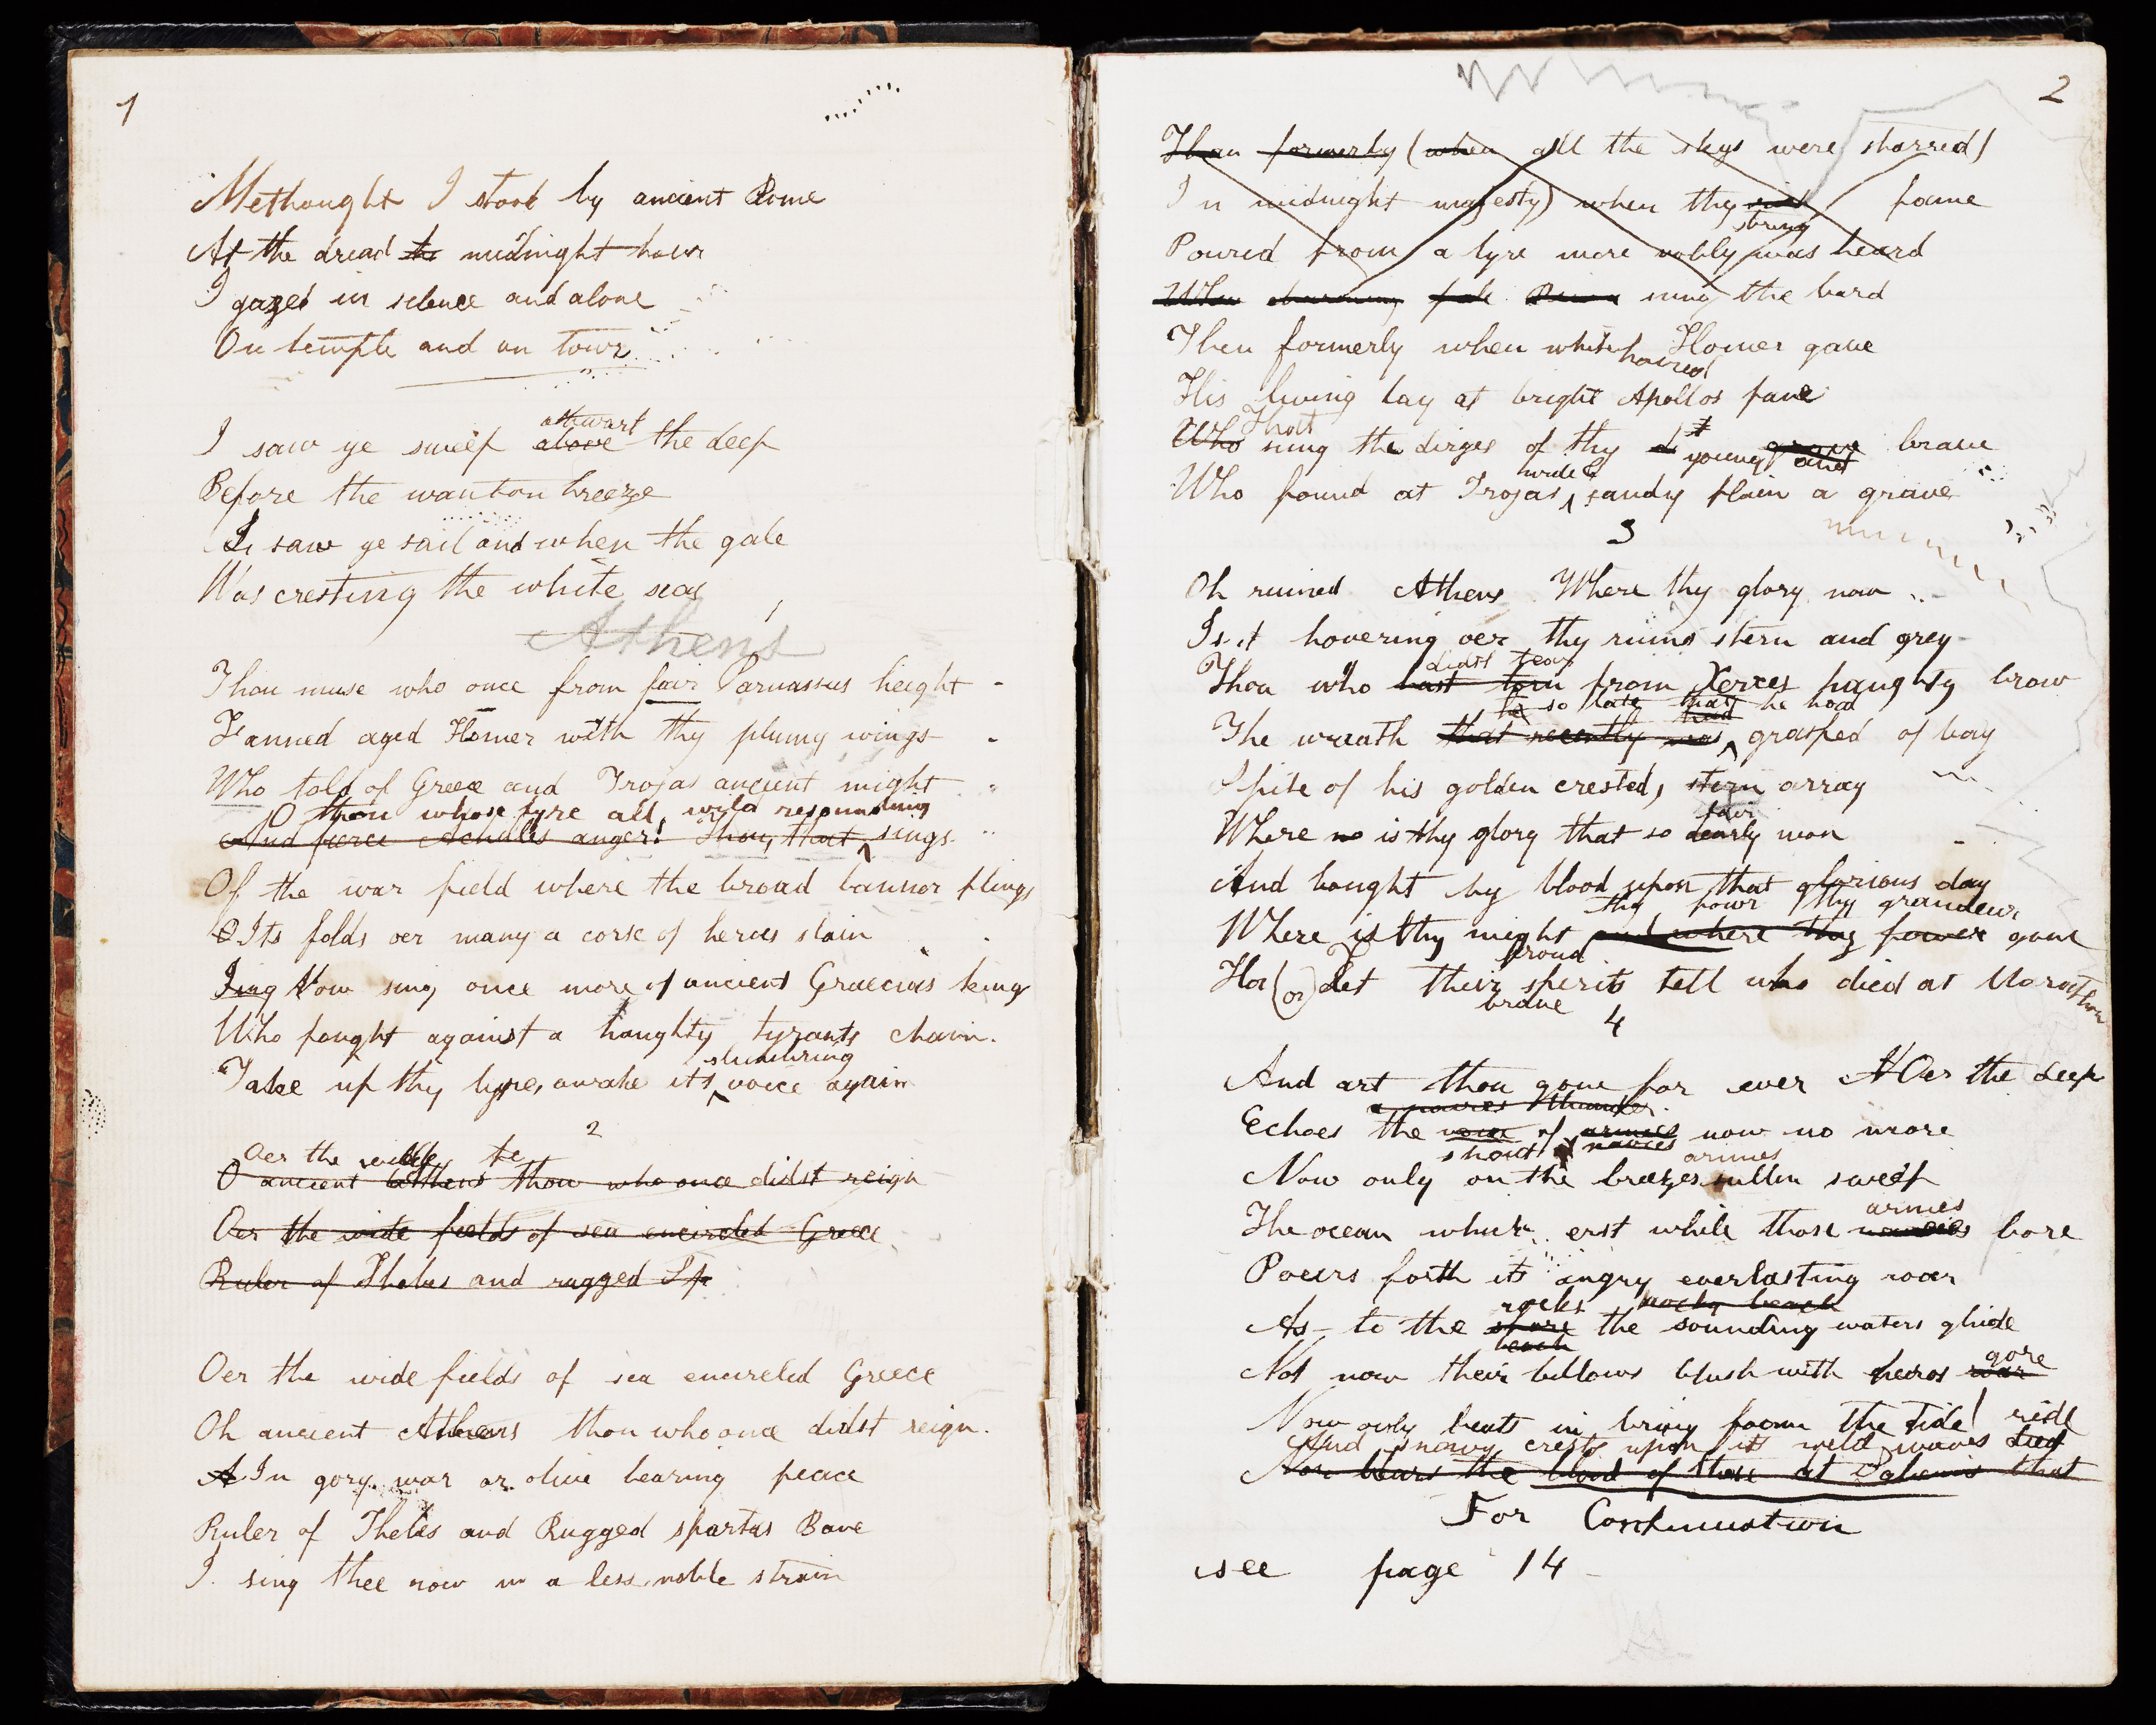 1
Methought I stood by ancient Rome
At the dread to midnight hour
I gazed in silence and alone
On temple and on tower
athwart
I saw ye sweep above the deep
Before the wanton breeze
I saw ye sail and when the gale
Was cresting the white seas
Athens
1
Thou muse who once from fair Parnassus height
Fanned aged Homer with thy plumy wings
Who told of Greece and Trojas ancient might
O thou whose lyre all wild resounding
And fierce Achilles anger! Thou, that sings
Of the war field where the broad bannor flings
Its folds oer many a corse of heroes slain
Sing Now sing once more of ancient Graecias kings
Who fought against a haughty tyrants chain.
slumbring
Take up thy lyre, awake its voice again
2
Oer the wide te
O ancient Athens thou who once didst reign
Oer the wide fields of sea encircled Greece
Ruler of Thebes and rugged Sp
Oer the wide fields of sea encircled Greece
Oh ancient Athens thou who once didst reign.
A In gory war or olive bearing peace
Ruler of Thebes and Rugged spartas Bane
I sing thee now in a less noble strain
2
Than formerly (when all the skys were starred)
In midnight majesty) when thy fame
string
Poured from a lyre more nobly was heard
When sung the bard
Then formerly when white Homer gave
haired
His living lay at bright Apollos fane
That
Who sung the dirges of thy d young grave brave
and
wide &
Who found at Trojas sandy plain a grave
3
Oh ruined Athens Where thy glory now
Is it hovering oer thy ruins stern and grey
didst tear
Thou who hast torn from Xerxes haughty brow
he so late had he had
The wreath that recently was grasped of bay
Spite of his golden crested, stern array
fair
Where no is thy glory that so dearly won
And bought by blood upon that glorious day
thy powr thy grandeur
Where is thy might and where thy power gone
proud
Ha (or) Let their spirits tell who died at Marathon
brave
4
And art thou gone for ever N Oer the deep
a navies thunder
Echoes the voice of armies now no more
shout of navies armies
Now only on the breezes sullen sweep
armies
The ocean which erst while those navies bore
Pours forth its angry everlasting roar
rocks rocky beach
As to the shore the sounding waters glide
beach
gore
Not now their billows blush with heros war
Now only beats in briny foam the tide!
And snowy crests upon its wild waves ride
Nor bears the blood of those at Salamis that died
For Continuation
see page 14